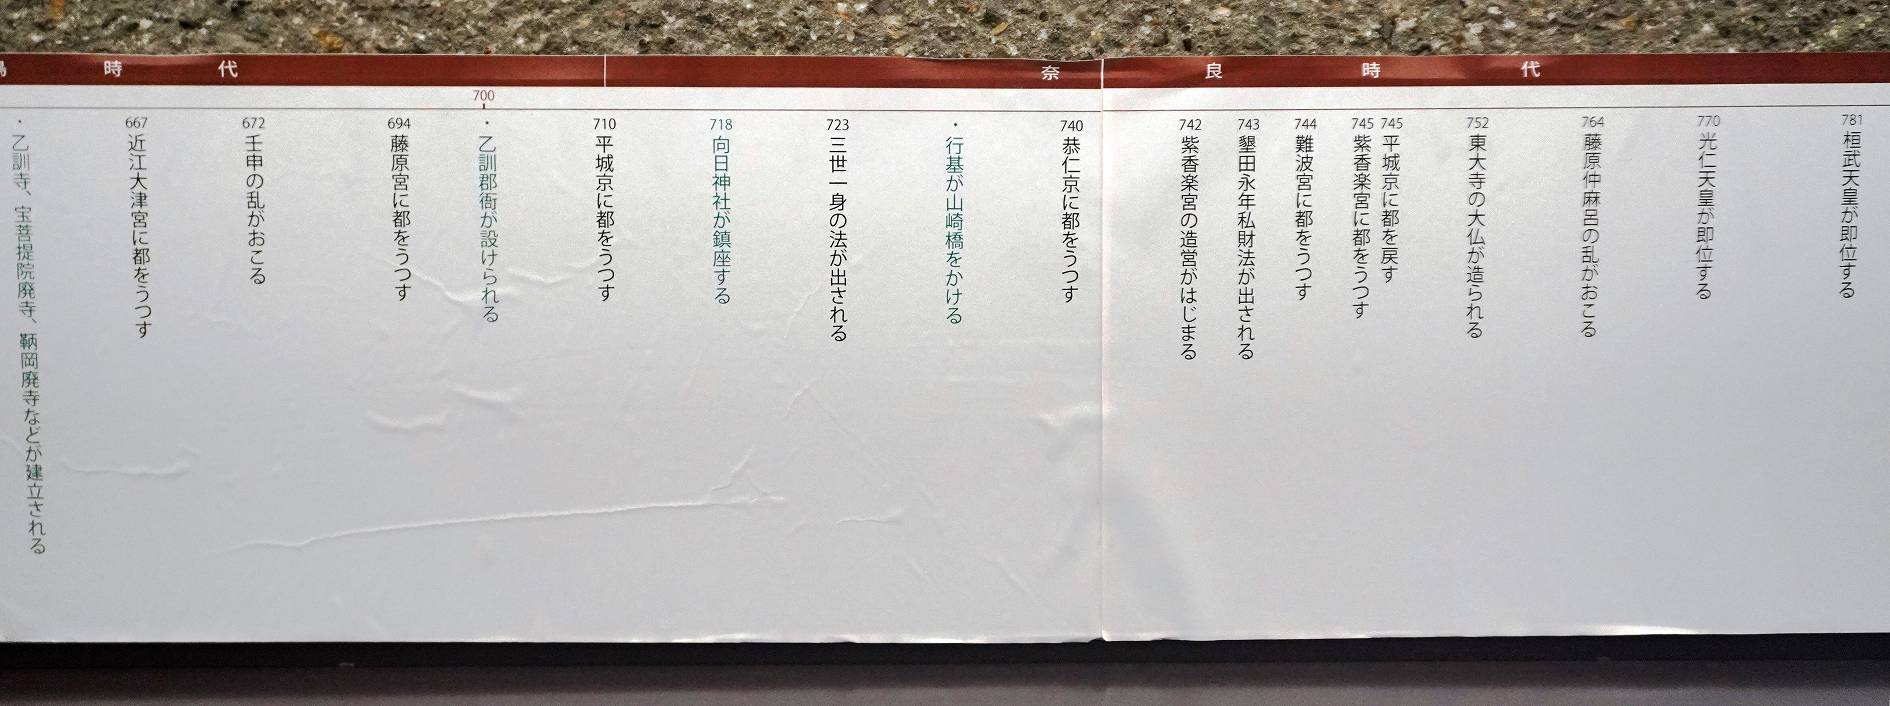 時代
奈良時代
700
・乙訓寺、宝菩提院廃寺、鞆岡廃寺などが建立される
667 近江大津宮に都をうつす
672 壬申の乱がおこる
694 藤原宮に都をうつす
・乙訓郡衙が設けられる
710 平城京に都をうつす
718 向日神社が鎮座する
723 三世一身の法が出される
・行基が山崎橋をかける
740 恭仁京に都をうつす
742 紫香楽宮の造営がはじまる
743 墾田永年私財法が出される
744 難波宮に都をうつす
745 紫香楽宮に都をうつす
745 平城京に都を戻す
752 東大寺の大仏が造られる
764 藤原仲麻呂の乱がおこる
770 光仁天皇が即位する
781 桓武天皇が即位する